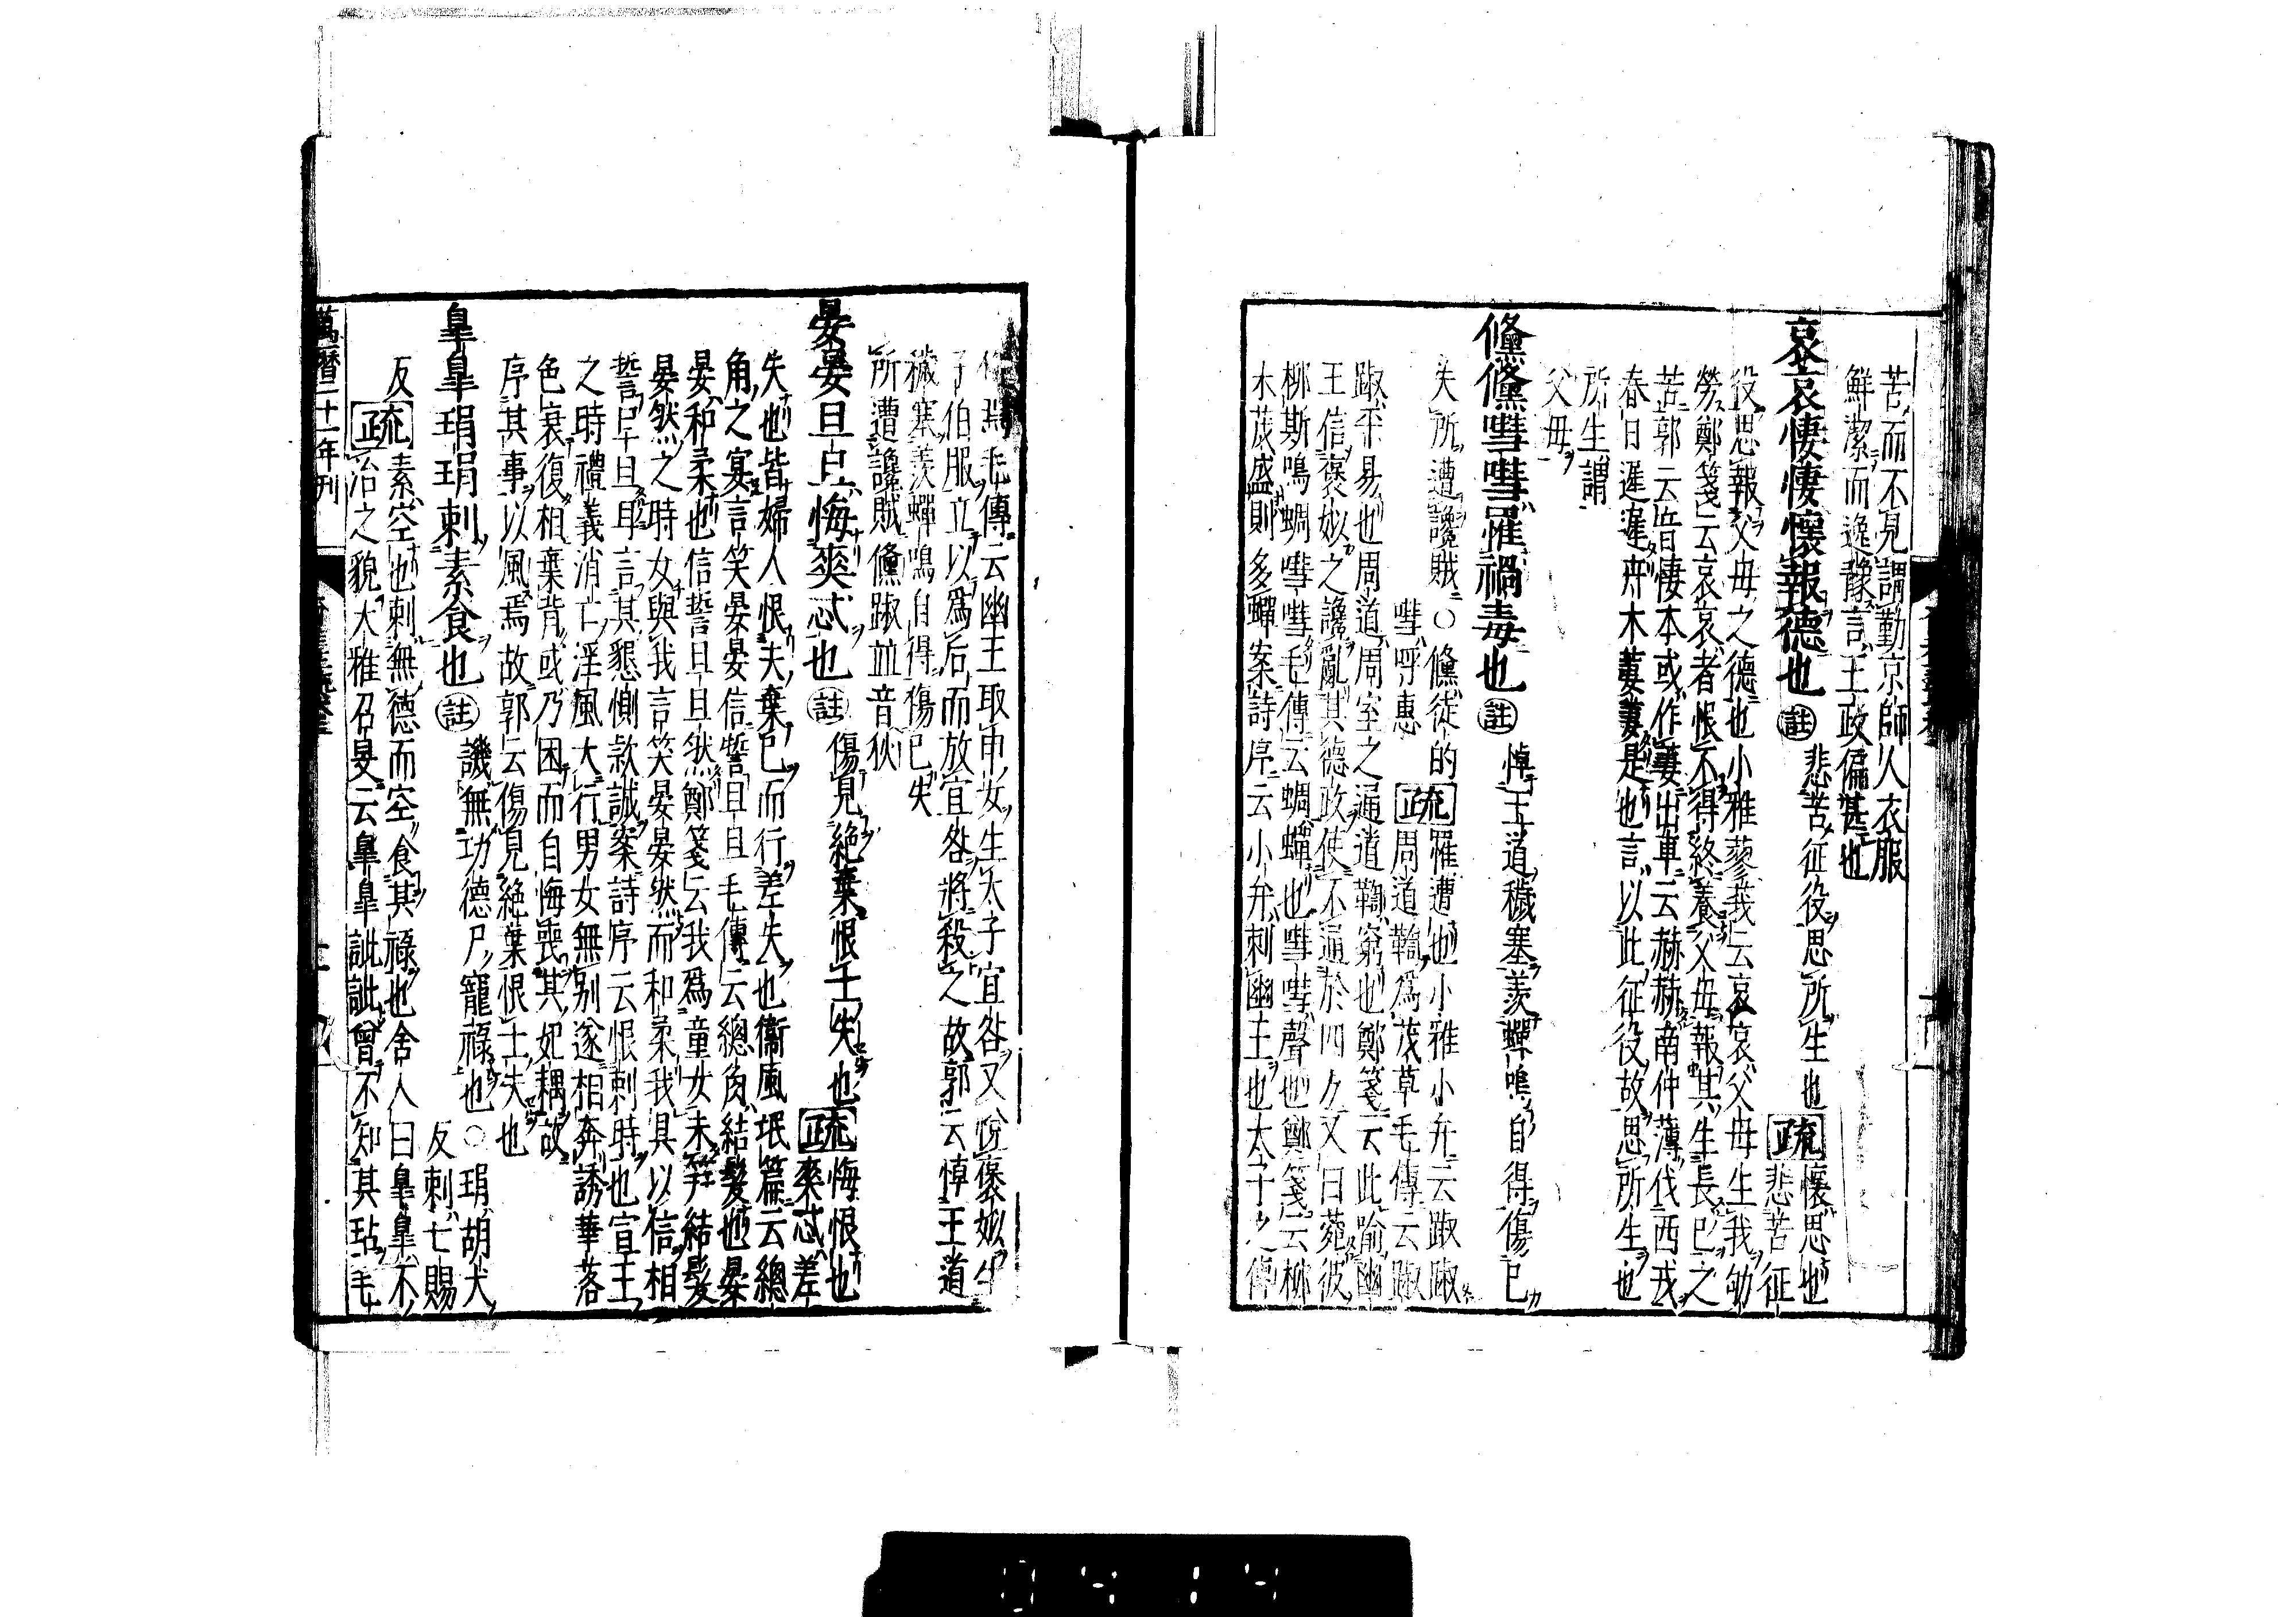 苦而不見謂勤京師人衣服
鮮潔而逸豫言王政偏甚也
哀哀悽悽懷報德也註悲苦征役思所生也疏懷思也
悲苦征
役思報父母之德也小雅蓼莪云哀哀父母生我劬
勞鄭箋云哀哀者恨不得終養父母報其生長已之
苦郭云㫺悽本或作萋出車云赫赫南仲薄伐西戎
春日遲遲卉木萋萋是也言以此征役故思所生也
所生謂
父母
儵儵嘒嘒罹禍毒也註悼王道穢塞羨蟬鳴自得傷已
失所遭讒賊○儵徒的
嘒呼惠
疏罹遭也小雅小弁云踧踧
周道鞫爲茂草毛傳云踧
踧平易也周道周室之通道鞫窮也鄭箋云此喻幽
王信褒姒之讒亂其德政使不通於四方又曰菀彼
柳斯鳴蜩嘒嘒毛傳云蜩蟬也嘒嘒聲也鄭箋云柳
木茂盛則多蟬案詩序云小弁刺幽王也太子之傅
作焉毛傳云幽王取申女生太子宜咎又說褒姒生
子伯服立以爲后而放宜咎將殺之故郭云悼王道
穢塞羨蟬鳴自得傷已失
所遭讒賊儵踧並音狄
晏晏旦旦悔爽忒也註傷見絶棄恨士失也疏悔恨也
爽忒差
失也皆婦人恨夫棄已而行差失也衞風氓篇云總
角之宴言笑晏晏信誓旦旦毛傳云總角結髮也晏
晏和柔也信誓旦旦然鄭箋云我爲童女未笄結髮
晏然之時女與我言笑晏晏然而和柔我具以信相
誓旦旦耳言其懇惻款誠案詩序云恨刺時也宣王
之時禮義消亡淫風大行男女無別遂相奔誘華落
色衰復相棄背或乃困而自悔喪其妃耦故
序其事以風焉故郭云傷見絶棄恨士失也
皐皐琄琄刺素食也註譏無功德尸寵祿也○琄胡犬
反刺七賜
反疏素空也刺無德而空食其祿也舍人曰皐皐不
治之貌大雅召旻云皐皐訿訿曾不知其玷毛
萬曆二十一年刊